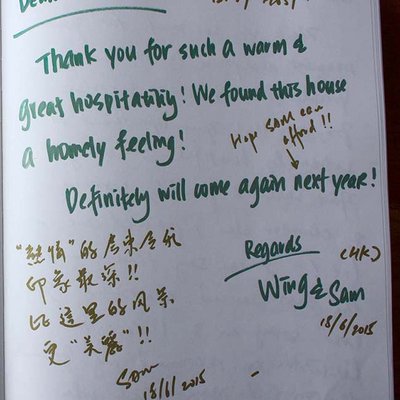 Thank you for such a warm &
great hospitality! We found this house
a homely feeling!
Hope Sam can
afford!!
Definitely will come again next year!
Regards (HK)
Wing & Sam
18/6/2015
"熱情"的房東令我
印象最深!!
比這里的风景
更"美麗"!!
Sam
18/6/2015